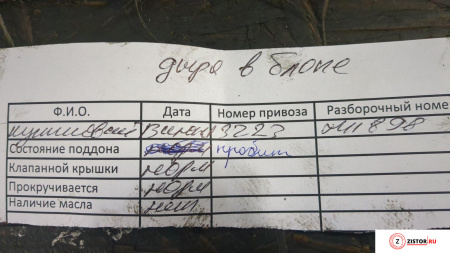 дыра в блоке
Ф.И.О. Дата Номер привоза Разборочный номе
3223 898
Состояние поддона пробит
Клапанной крышки норм
Прокручивается норм
Наличие масла нет
Z ZISTOR.RU